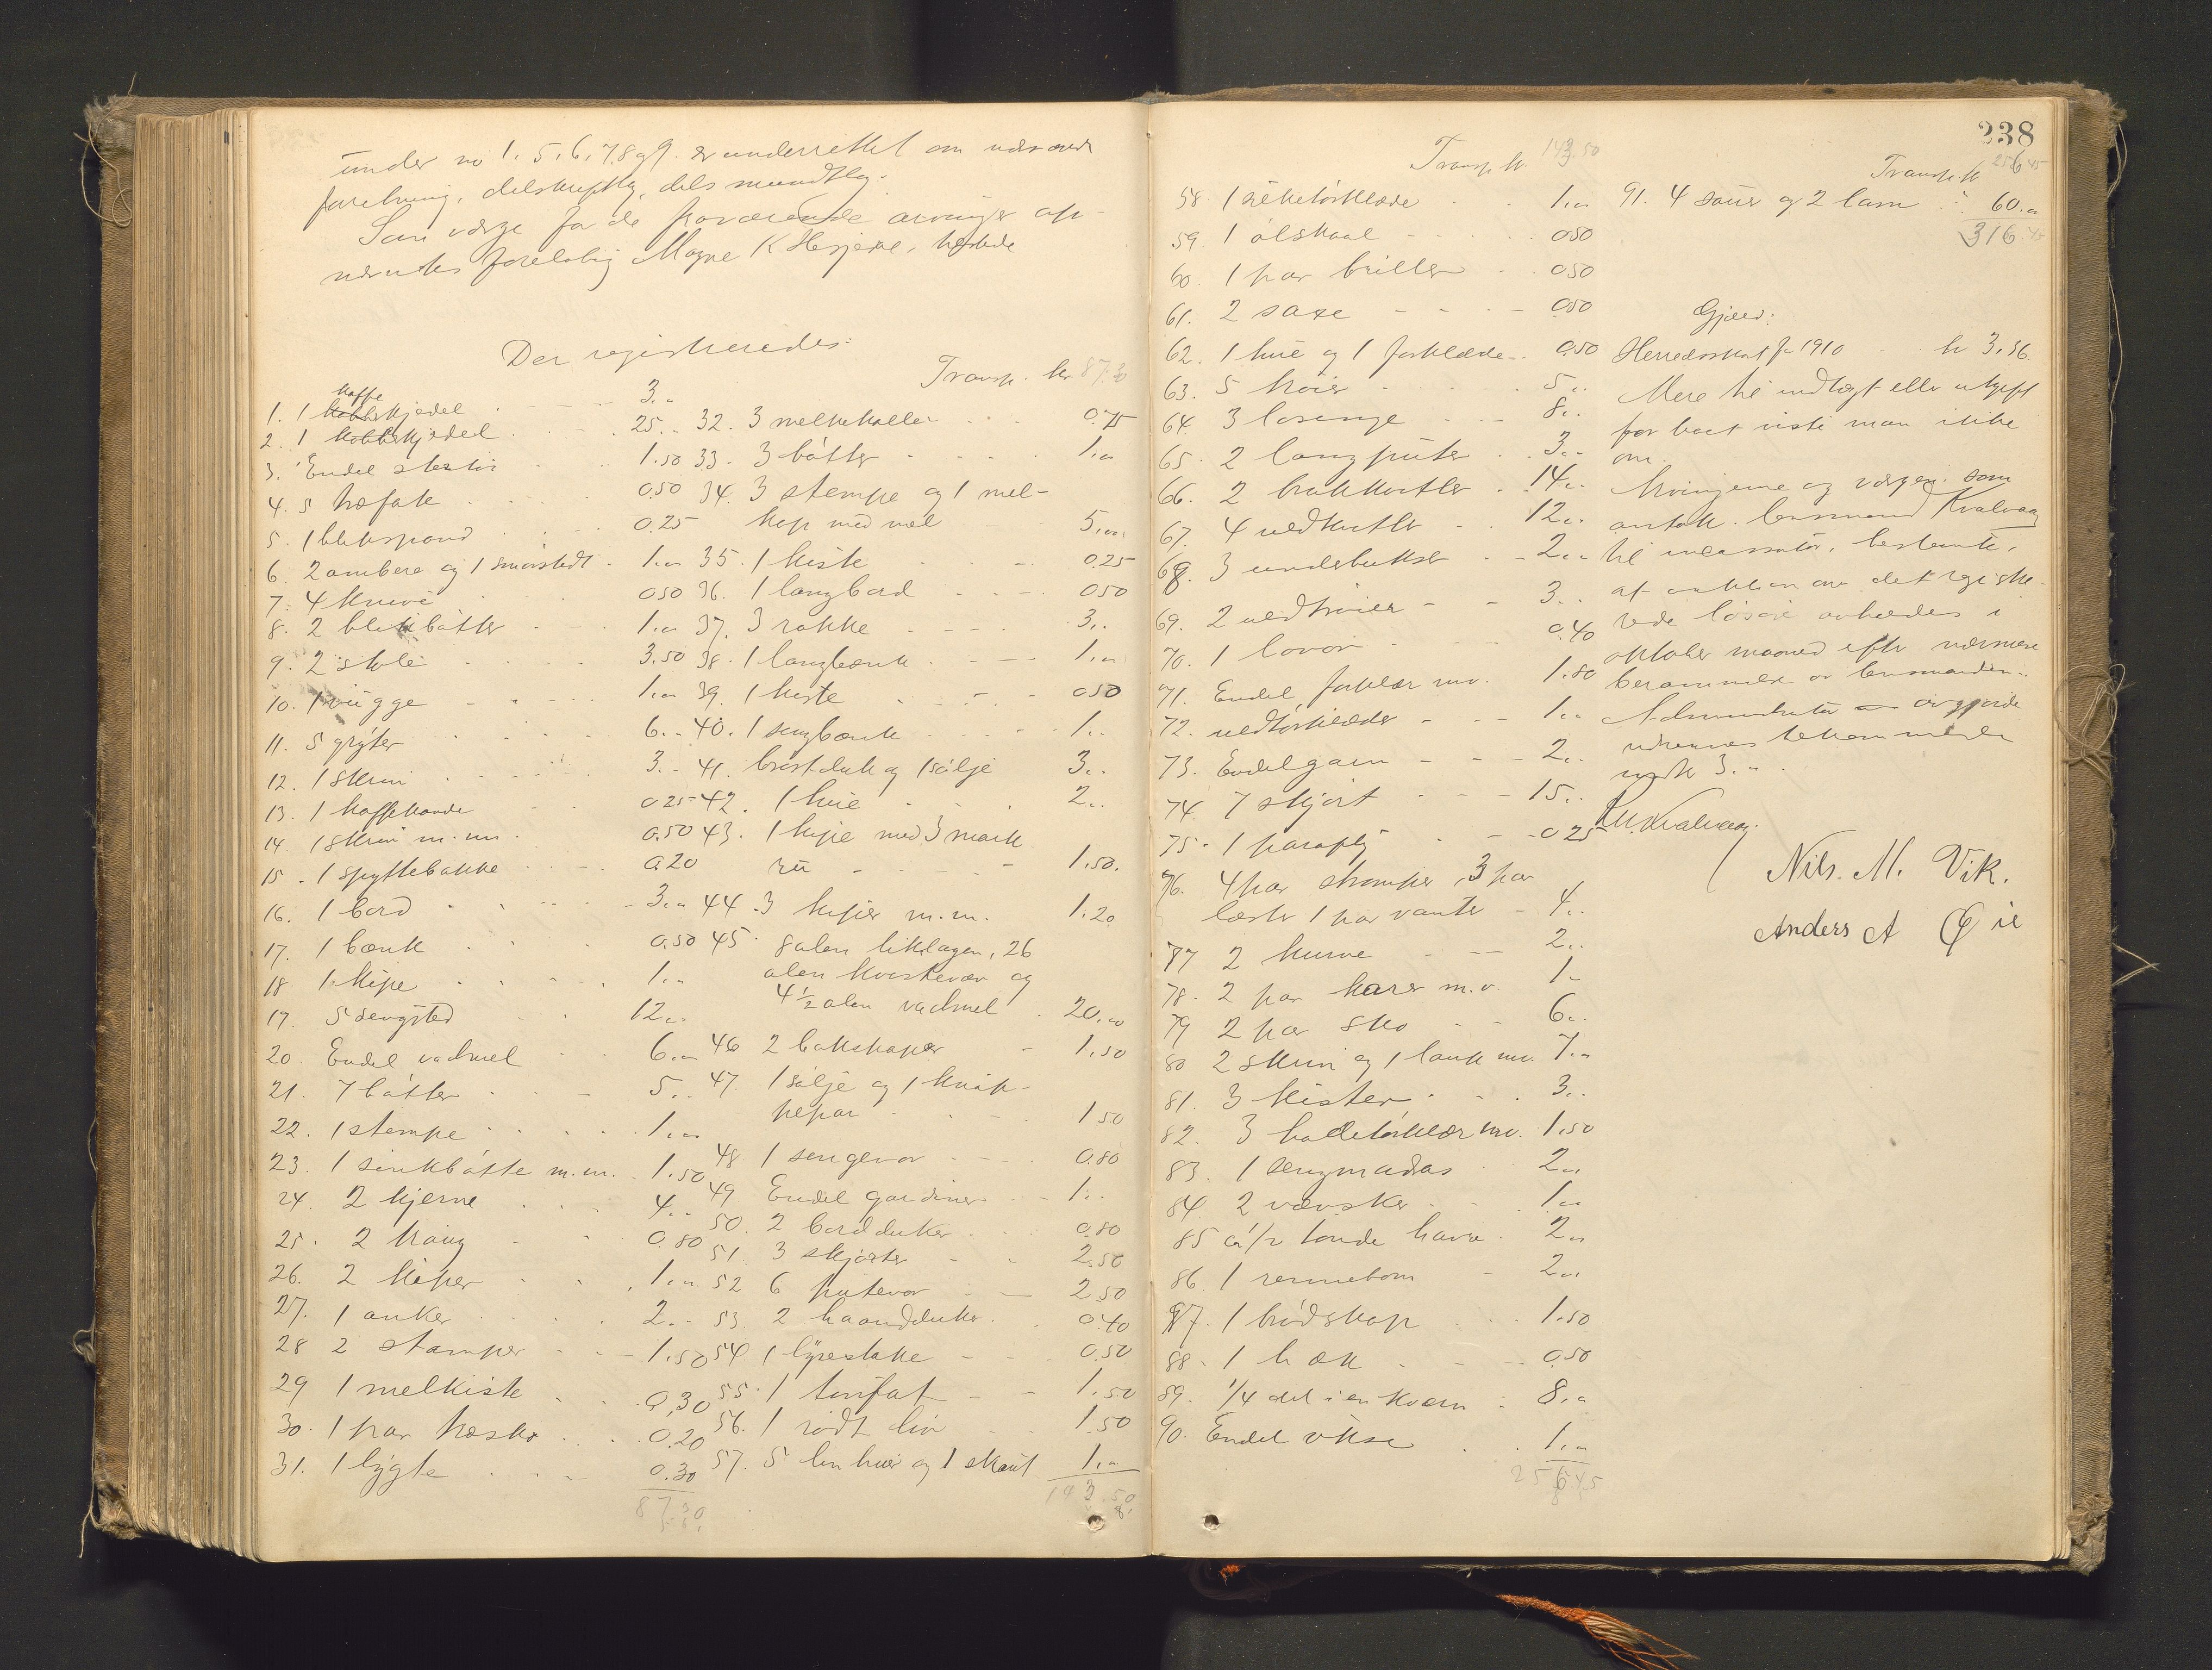 under no 1. 5, 6, 7, 8 og 9. er underrettet om
forretning, dels skriftlig, dels mundtlig.
Som værge for de fraværende arvinger op-
nævntes foreløbig Magne K Hesjedal,
Der registreredes:
1. 1 kaffekjedel 3.„
2. 1 kobbekjedel 25.„
3. Endel 1.50
4. 5 træfate 0.50
5. 1 blikspand 0.25
6. 2 ambere og 1 1.„
7. 4 knive 0.50
8. 2 blikbøtter 1.„
9. 2 stole 3.50
10. 1 vugge 1.„
11. 5 gryter 6.„
12. 1 skrin 3.„
13. 1 kaffekande 0.25
14. 1 skrin m.m. 0.50
15. 1 spyttebakke 0.20
16. 1 bord 3.„
17. 1 bænk 0.50
18. 1 kipe 1.„
19. 5 sengsted 12.„
20 Endel vadmel 6.„
21. 7 bøtter 5.„
22. 1 stampe 1.„
23. 1 sinkbøtte m.m. 1.50
24. 2 kjerne 4.„
25. 2 0.80
26. 2 kiper 1.„
27. 1 anker 2.„
28 2 stamper 1.50
29 1 melkiste 0.30
30. 1 par træsko 0.20
31. 1 lygte 0.30
87.30
Transp. kr 87.30
32. 3 melkekoller 0.75
33. 3 bøtter 1.„
34. 3 stampe og 1 mel-
kop med mel 5.„
35. 1 kiste 0.25
36. 1 langbord 0.50
37. 3 rokke 3.„
38. 1 langbænk 1.„
39. 1 kiste 0.50
40. 1 sengbænk 1.„
41. brystduk og 1 sølje 3.„
42. 1 hue 2.„
43. 1 kipe med 3 mark
1.50.
44. 3 kiper m.m. 1.20
45. 8 alen liklagen, 26
alen og
4 1/2 alen vadmel 20.„
46 2 1.50
47. 1 sølje og 1 knap-
pepar 1.50
48 1 sengevor 0.80
49 Endel gardiner 1.„
50. 2 bordduker 0.80
51. 3 skjorter 2.50
52 6 putevor 2.50
53. 2 haandduker 0.40
54 1 lysestake 0.50
55. 1 1.50
56. 1 rødt liv 1.50
57. 5 lin huer og 1 skaut 1.„
143.50
238
Transp. kr 143.50
58. 1 silketørklæde 1.„
59. 1 ølskaal 0.50
60. 1 par briller 0.50
61. 2 saxe 0.50
62. 1 hue og 1 forklæde 0.50
63. 5 trøier 5.„
64. 3 8.„
65. 2 langputer 3.„
66. 2 14.„
67. 4 uldkutler 12.„
68. 3 underbukser 2.„
69. 2 uldtrøier 3.„
70. 1 0.40
71. Endel forklær m.v. 1.80
72. uldtørklæder 1.„
73. Endel garn 2.„
74. 7 skjørt 15.„
75. 1 paraply 0.25
76. 4 par strømper, 3 par
læster 1 par vanter 4.„
77 2 kurve 2.„
78. 2 par karer m.v. 1.„
79 2 par sko 6.„
80 2 skrin og 1 m.v. 7.„
81. 3 kister 3.„
82. 3 m.v. 1.50
83. 1 sengmadras 2.„
84 2 væsker 1.„
85 1/2 tønde havre 2.„
86. 1 rennebom 2.„
87. 1 brødskap 1.50
88. 1 0.50
89. 1/4 del i en kværn 8.„
90. Endel økse 1.„
256.45
Transp. kr 256.45
91. 4 sauer og 2 lam 60.„
316.45
Gjæld:
Herredsskat for 1910 kr 3.36
Mere til indtægt eller utgift
for boet viste man ikke
om.
Arvingerne og værgen, som
antok lensmand Kvalvaag
til incassator, bestemte,
at auktion over det registre-
rede løsøre avholdes i
oktober maaned efter nærmere
berammelse av lensmanden.
3.„
Kvalvaag.
Nils. M. Vik.
Anders A Øie